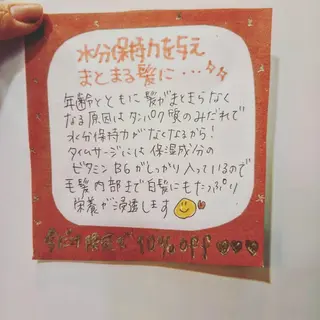 水分保持力を与え
まとまる髪に・・・
年齢とともに髪がまとまらなく
なる原因はタンパク質のみだれで
水分保持力がなくなるから!
タイムサージには保湿成分の
ビタミンB6がしっかり入っているので
毛髪内部まで白髪にもたっぷり
栄養が浸透します
限定で10%OFF